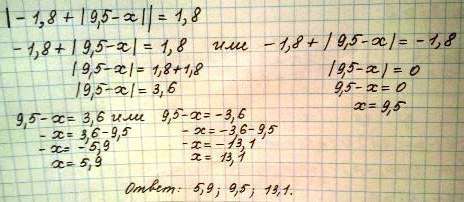 |-1,8+|9,5-x||=1,8
-1,8+|9,5-x|=1,8 или -1,8+|9,5-x|=-1,8
|9,5-x|=1,8+1,8 |9,5-x|=0
|9,5-x|=3,6 9,5-x=0
x=9,5
9,5-x=3,6 или 9,5-x=-3,6
-x=3,6-9,5 -x=-3,6-9,5
-x=-5,9 -x=-13,1
x=5,9 x=13,1
Ответ: 5,9; 9,5; 13,1.